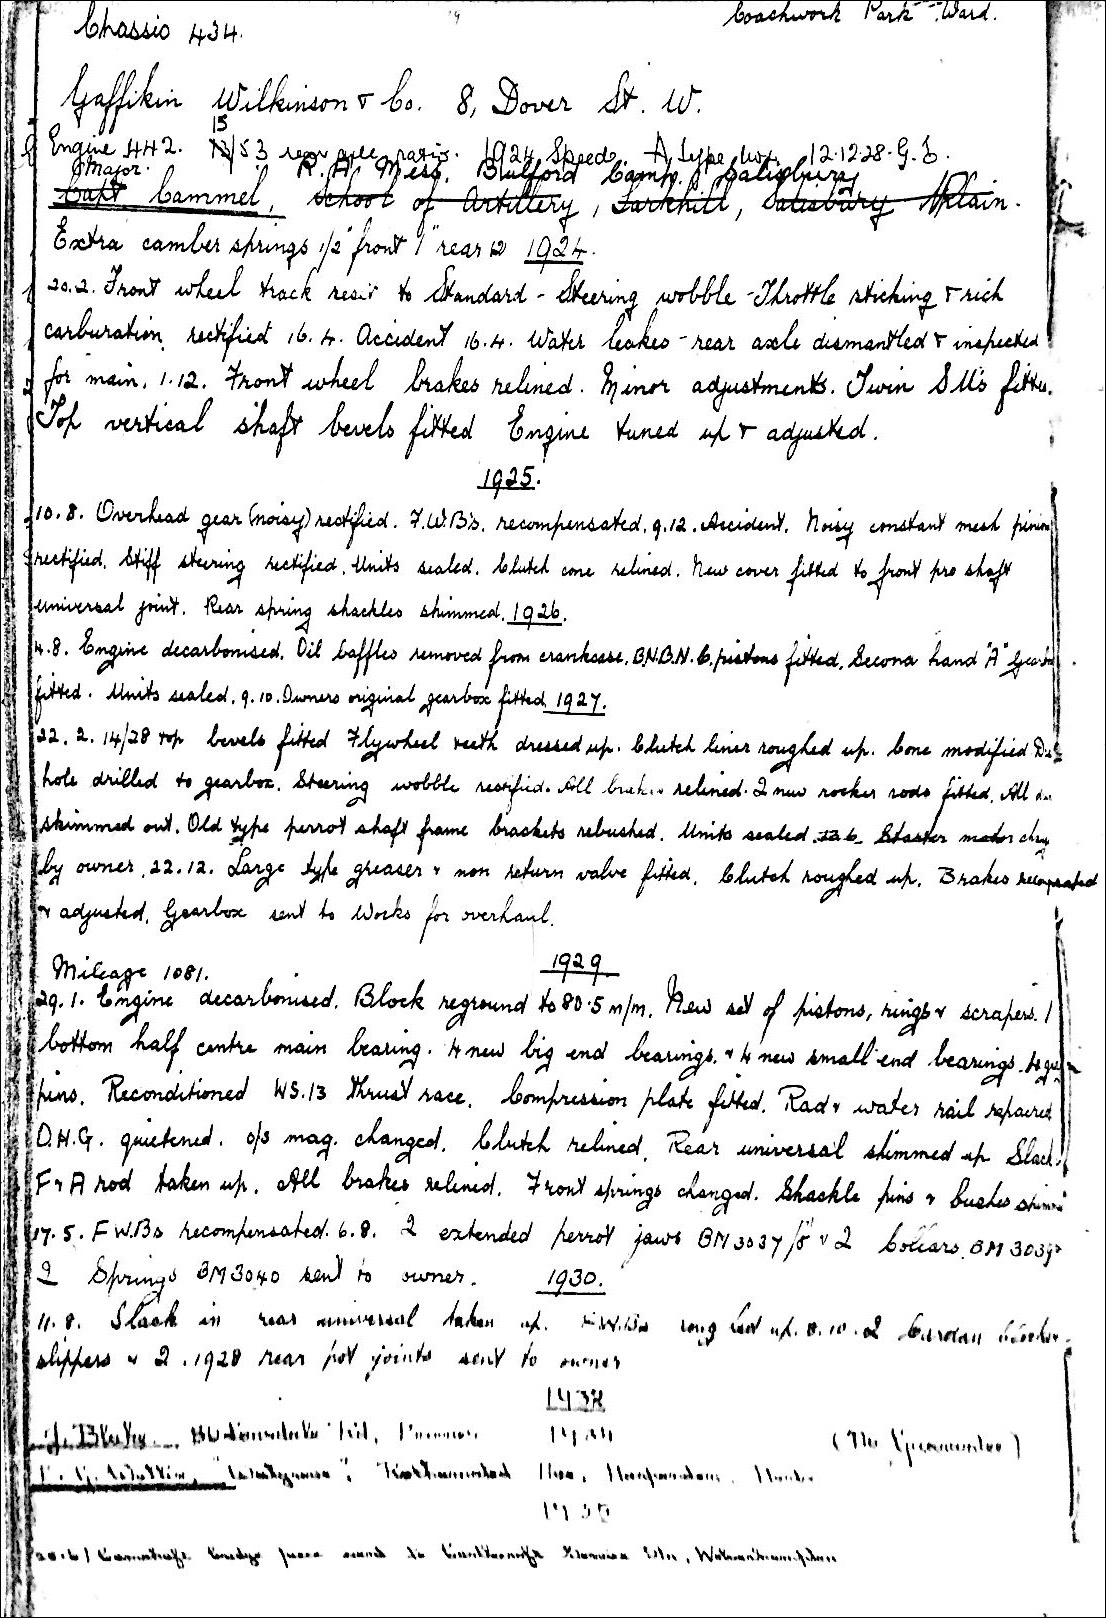 Chassis 434.
Coachwork Park Ward.
Gaffikin Wilkinson & Co. 8, Dover St. W.
15
Engine 442. 13/53 rear axle ratio. 1924 Speedo. A type box. 12.12.28. G.B.
Major. R.A. Mess. Bulford Camp. Salisbury
Capt Cammel, School of Artillery, Larkhill, Salisbury Plain.
Extra camber springs 1/2" front 1" rear 1924.
20.2. Front wheel track reset to Standard - Steering wobble - Throttle sticking & rich
carburation rectified 16.4. Accident 16.4. Water leakes - rear axle dismantled & inspected
for main. 1.12. Front wheel brakes relined. Minor adjustments. Twin SU's fitted.
Top vertical shaft bevels fitted Engine tuned up & adjusted.
1925.
10.8. Overhead gear (noisy) rectified. F.W.B's. recompensated. 9.12. Accident. Noisy constant mesh pinion
rectified. Stiff steering rectified. Units sealed. Clutch cone relined. New cover fitted to front pro shaft
universal joint. Rear spring shackles shimmed. 1926.
4.8. Engine decarbonised. Oil baffles removed from crankcase. B.N.B.N.C. pistons fitted. Second hand "A" Gearbox
fitted. Units sealed. 9.10. Owners original gearbox fitted 1927.
22.2. 14/28 top bevels fitted Flywheel teeth dressed up. Clutch liner roughed up. Cone modified
hole drilled to gearbox. Steering wobble rectified. All brakes relined. 2 new rocker rods fitted. All
skimmed out. Old type perrot shaft frame brackets rebushed. Units sealed. Starter motor
by owner. 22.12. Large type greaser & non return valve fitted. Clutch roughed up. Brakes
& adjusted. Gearbox sent to Works for overhaul.
1929
Mileage 1081.
29.1. Engine decarbonised. Block reground to 80.5 m/m. New set of pistons, rings & scrapers. 1
bottom half centre main bearing. 4 new big end bearings. & 4 new small end bearings.
pins. Reconditioned WS.13 thrust race. Compression plate fitted. Rad & water rail repaired
O.H.G. quietened. o/s mag. changed. Clutch relined. Rear universal shimmed up Slack
F & A rod taken up. All brakes relined. Front springs changed. Shackle pins & bushes
17.5. F.W.Bs recompensated. 6.8. 2 extended perrot jaws BM3037/8 & 2 Collars BM3039
2 Springs BM3040 sent to owner. 1930.
11.8. Slack in rear universal taken up. F.W.Bs up. 8.10. 2 Cardan
slippers & 2. 1928 rear pot joints sent to owner